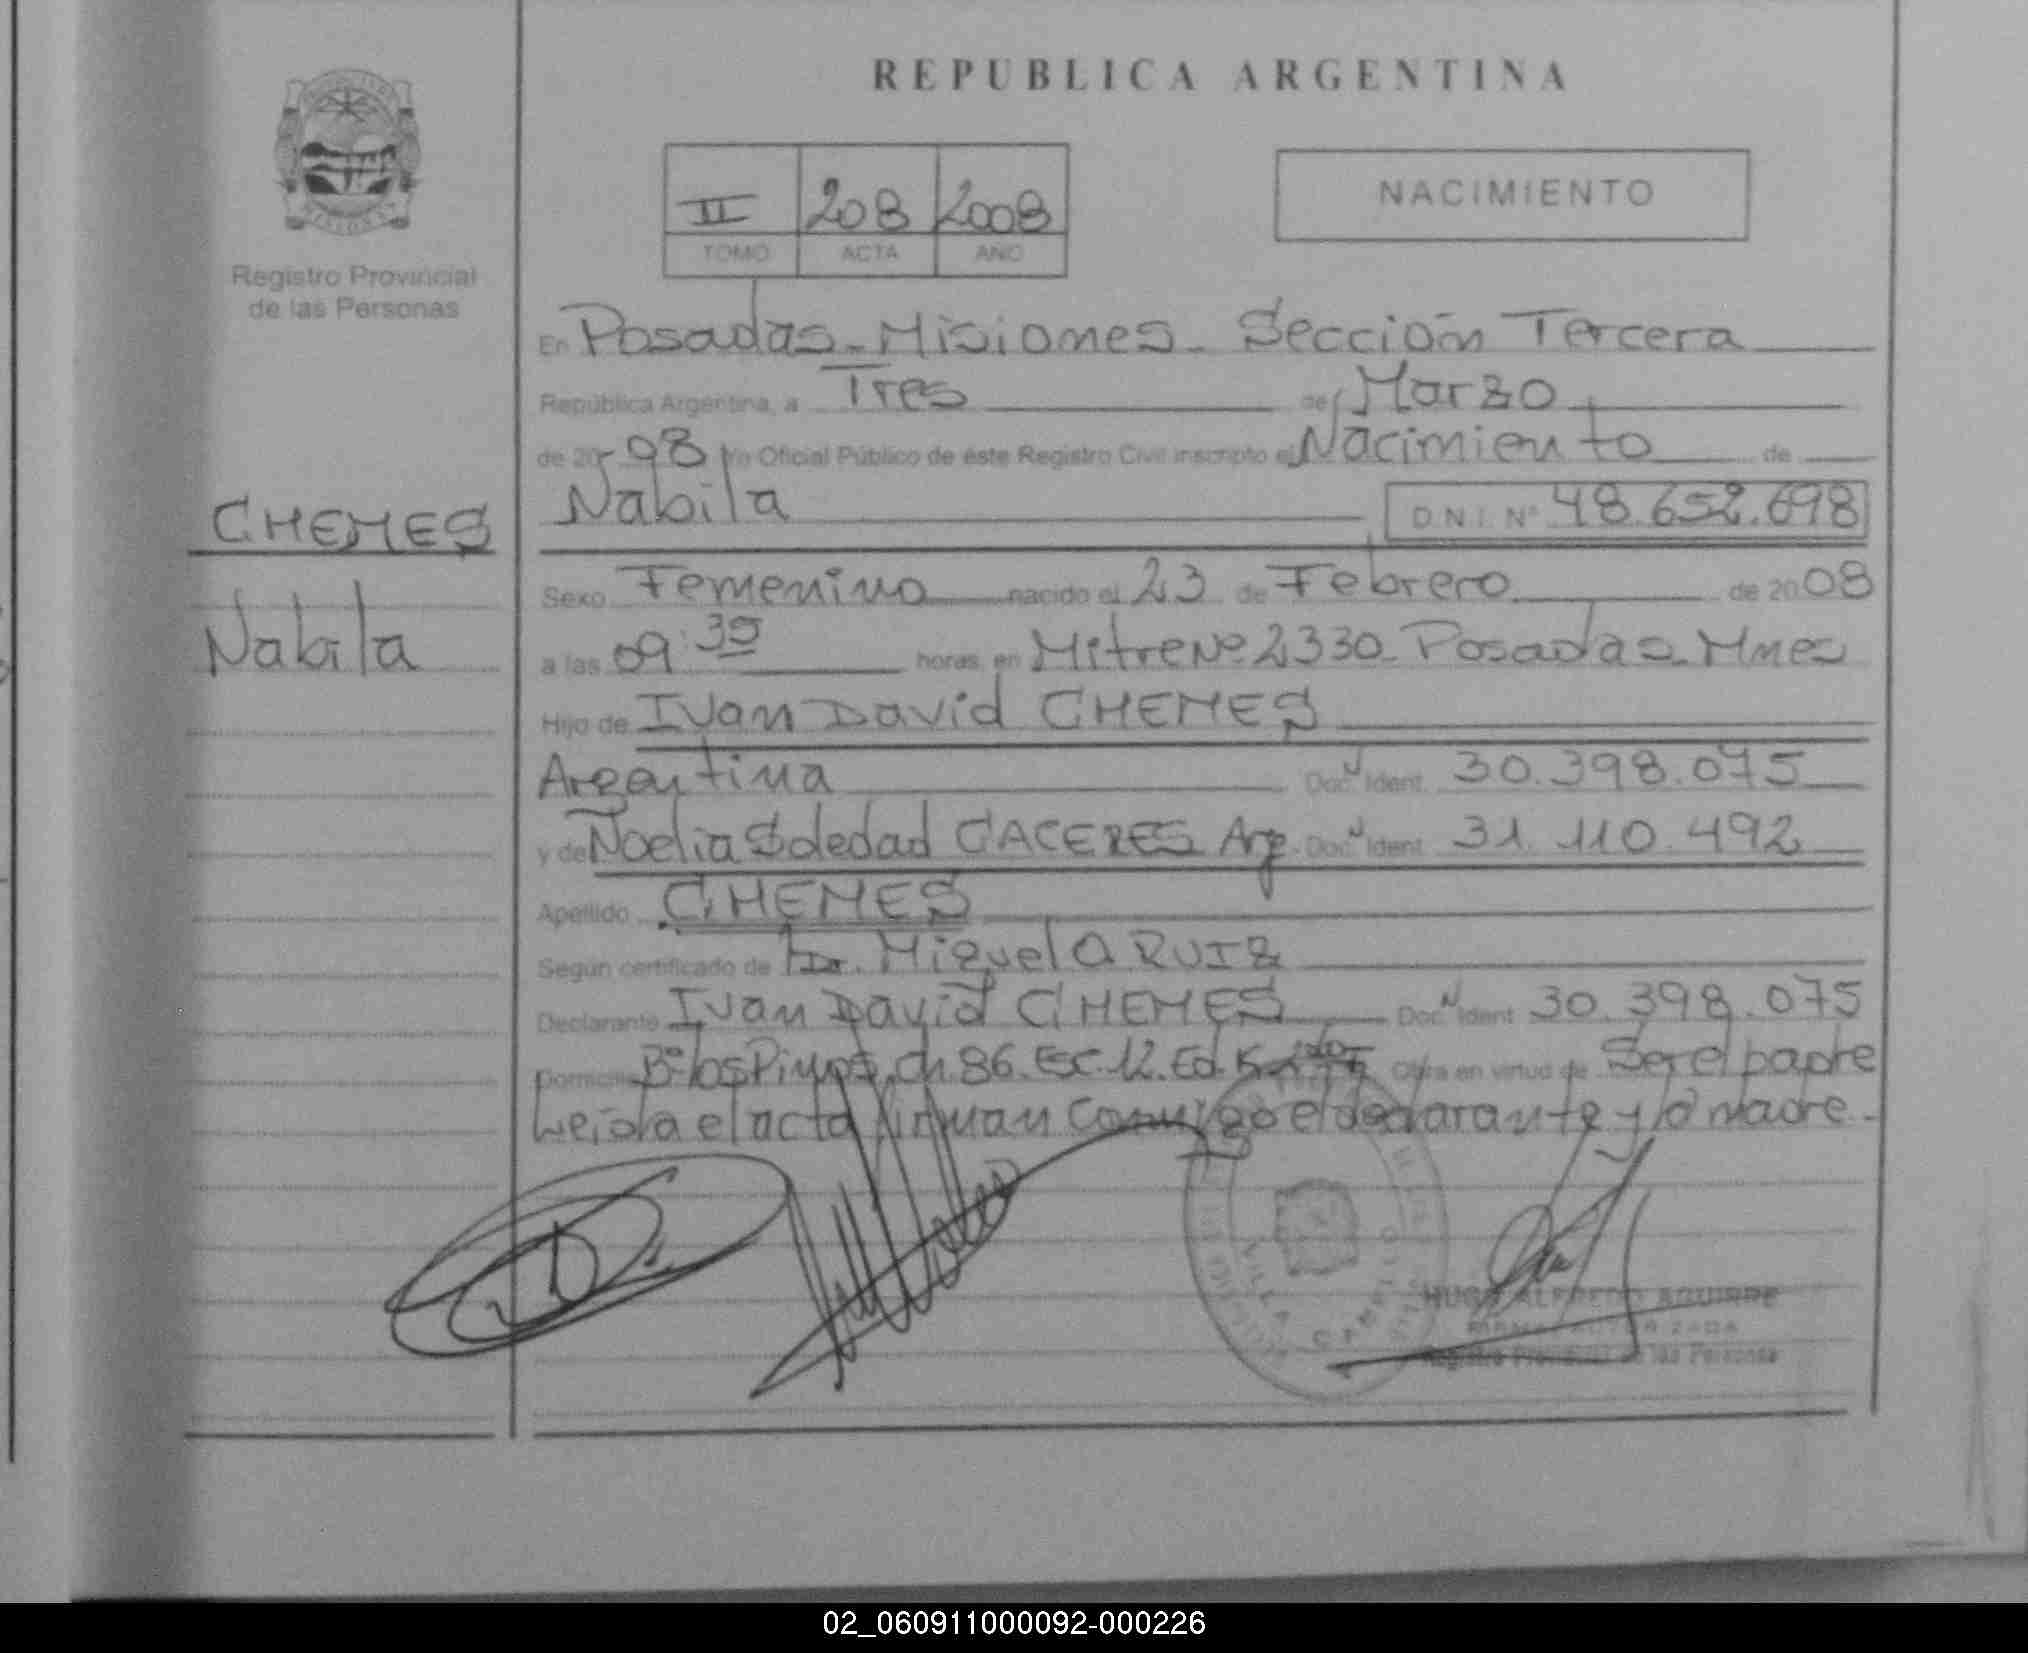 REPUBLICA ARGENTINA
II 208 2008
TOMO ACTA AÑO
NACIMIENTO
Registro Provincial
de las Personas
CHEMES
Nabila
En Posadas - Misiones - Sección Tercera
República Argentina, a Tres de Marzo
de 20 08 Yo Oficial Público de éste Registro Civil inscripto el Nacimiento de
Nabila D.N.I. N° 48.652.698
Sexo Femenino nacido el 23 de Febrero de 2008
a las 09:35 horas, en Mitre Nº 2330 - Posadas - Mnes
Hijo de Ivan David CHEMES
Argentina Doc. Ident. 30.398.075
y de Noelia Soledad CACERES Arg. Doc. Ident. 31.110.492
Apellido CHEMES
Según certificado de Dr. Miguel A RUIZ
Declarante Ivan David CHEMES Doc. Ident. 30.398.075
Domicilio Bº los Pinos, Ch. 86. Esc. 12. Ed. Obra en virtud de Ser el padre
Leida el acta firman conmigo el declarante y la madre.
HUGO ALFREDO AGUIRRE
FIRMA AUTORIZADA
Registro Provincial de las Personas
02_060911000092-000226